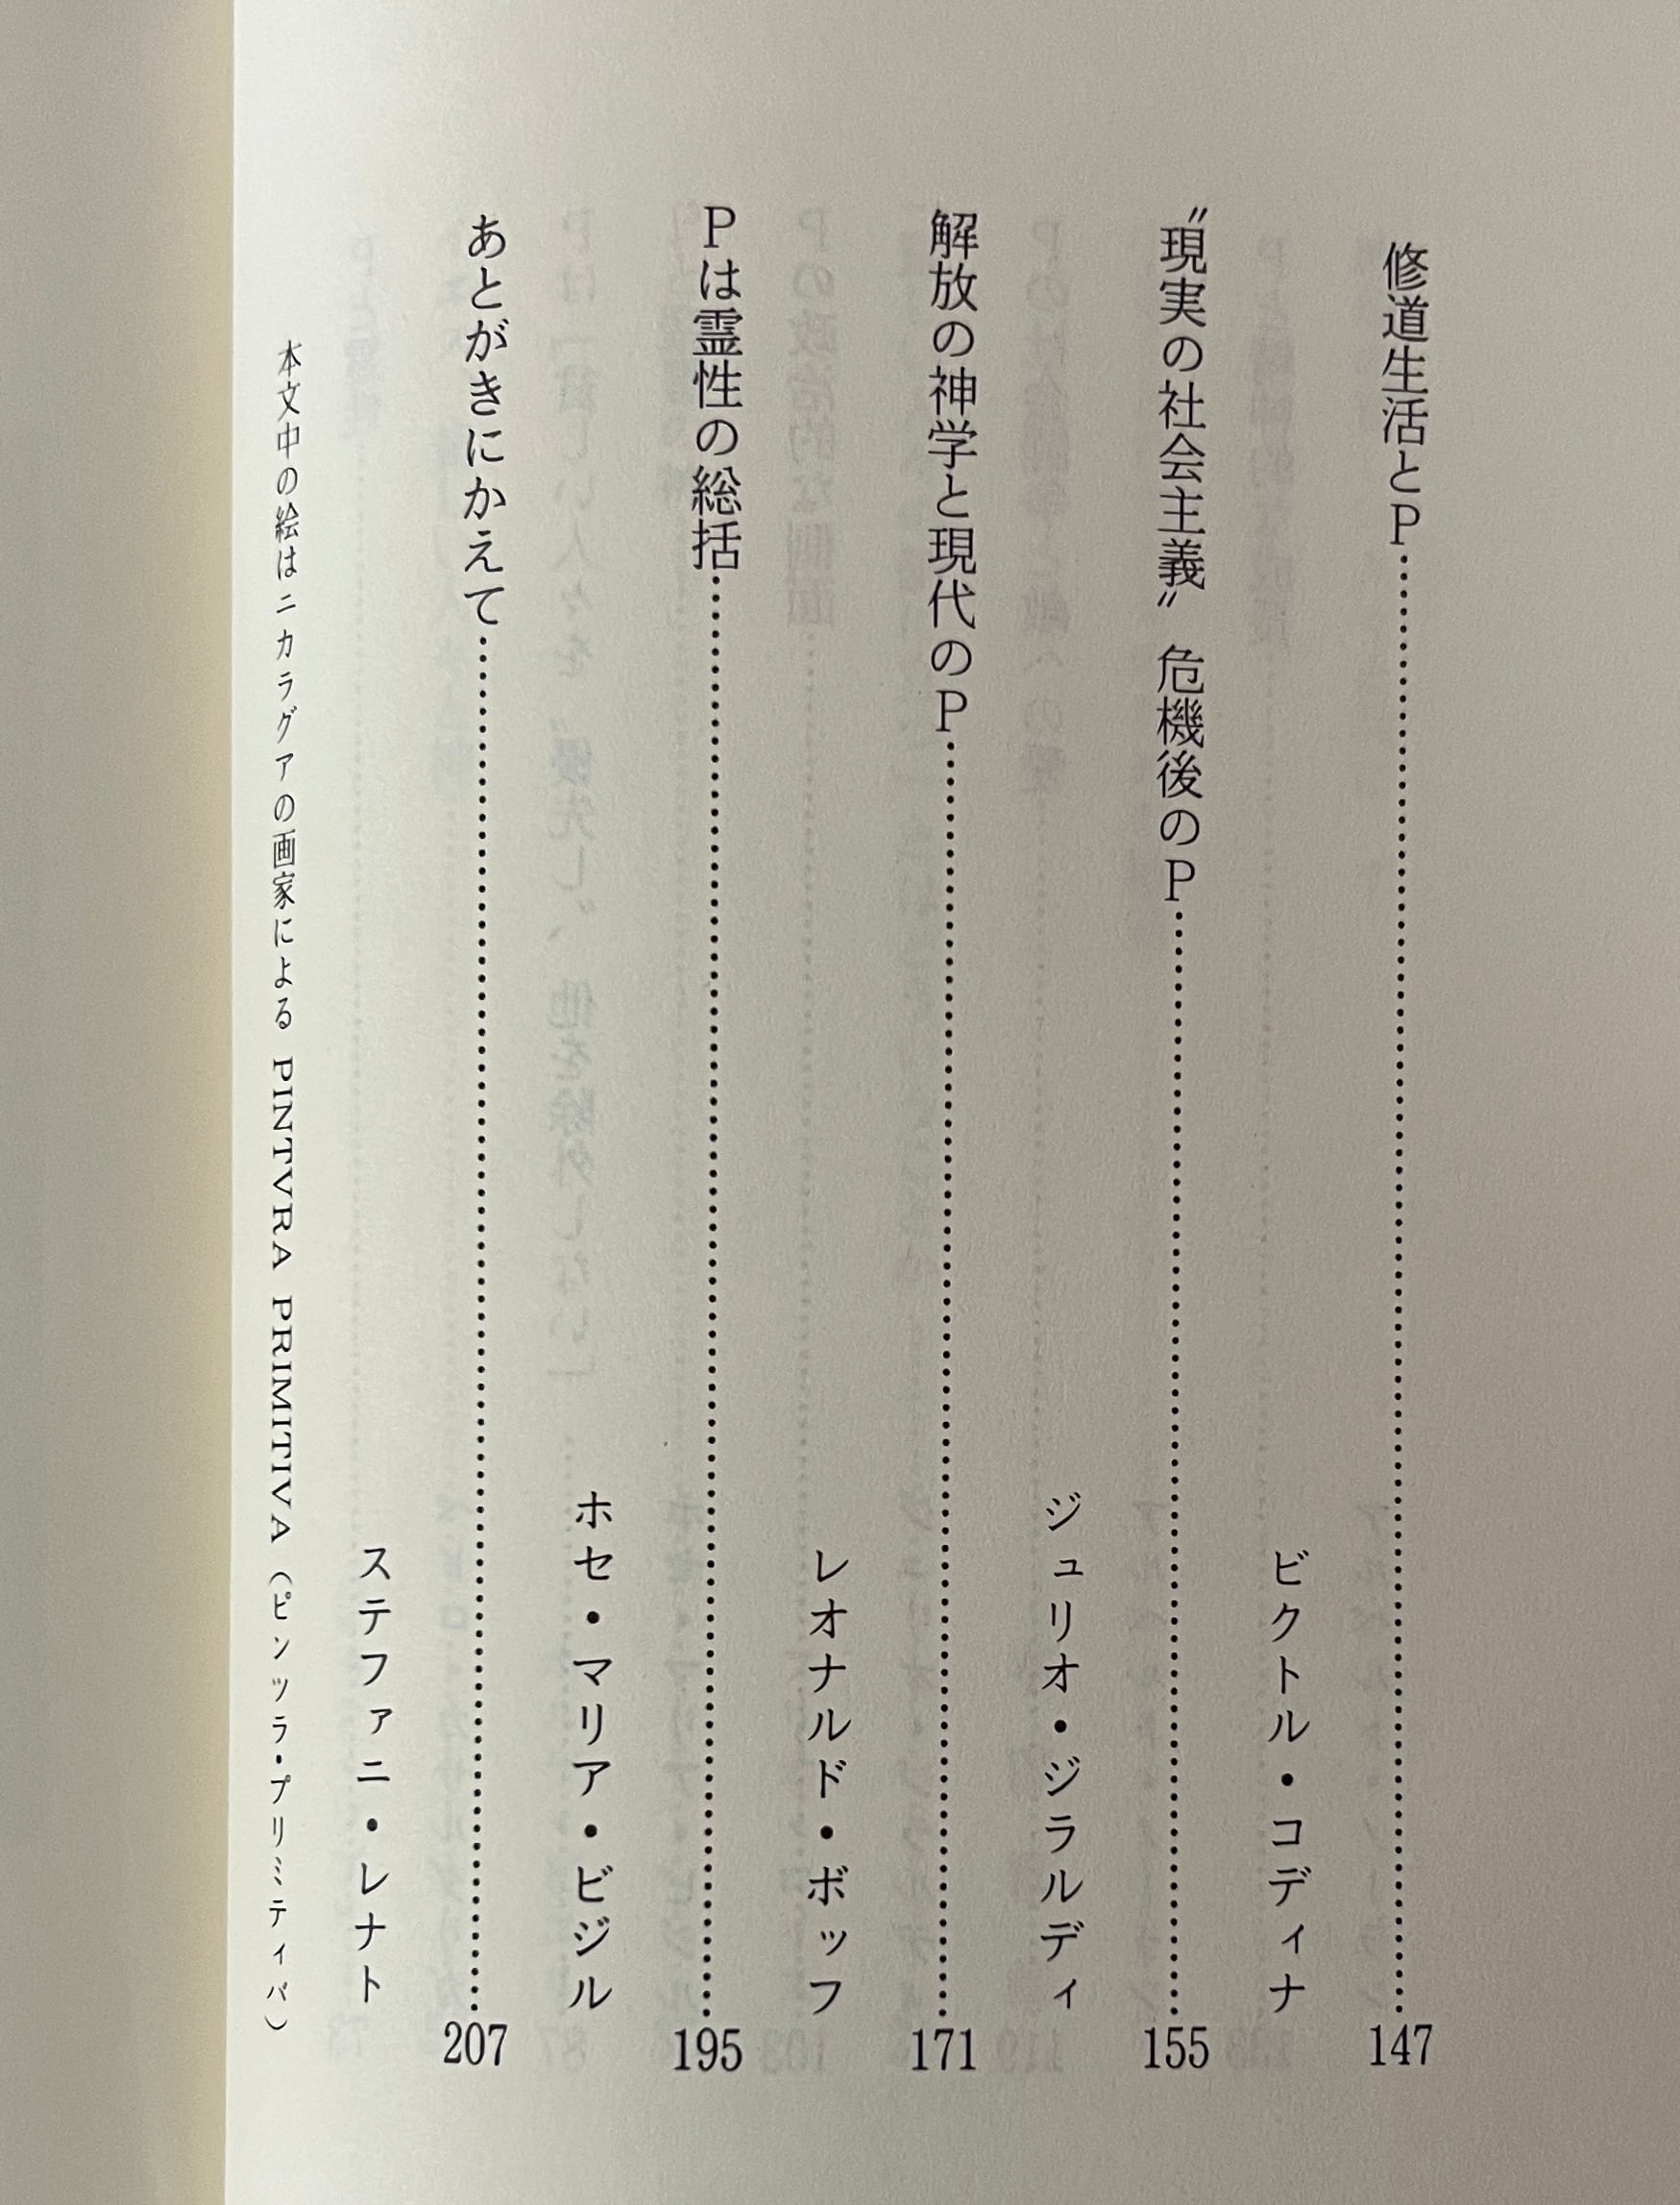 修道生活とP……………147
ビクトル・コディナ
〝現実の社会主義〟危機後のP……………155
ジュリオ・ジラルディ
解放の神学と現代のP……………171
レオナルド・ボッフ
Pは霊性の総括……………195
ホセ・マリア・ビジル
あとがきにかえて……………207
ステファニ・レナト
本文中の絵はニカラグアの画家による PINTVRA PRIMITIVA（ピンツラ・プリミティバ）